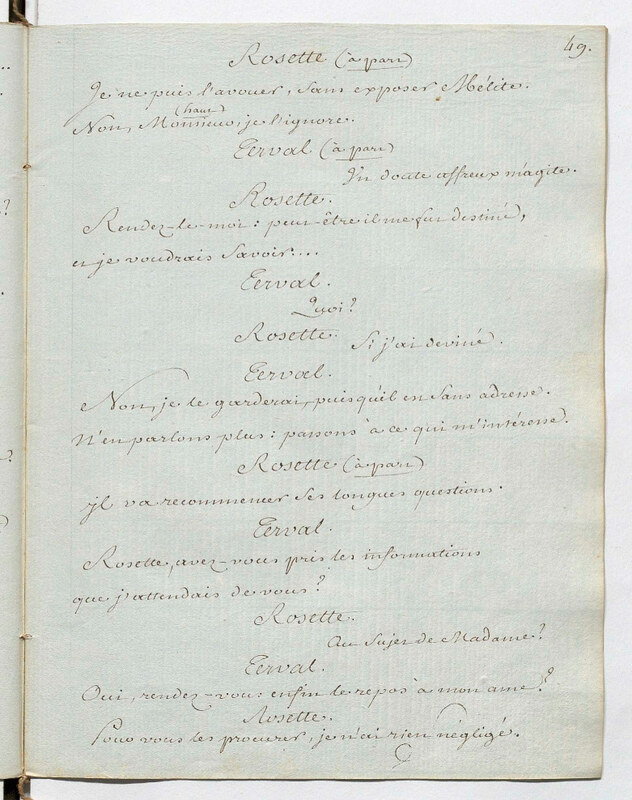 49.
Rosette (à part)
Je ne puis l'avouer, sans exposer Mélite.
(haut)
Non, Monsieur, je l'ignore.
Terval (à part)
Un doute affreux m'agite.
Rosette.
Rendez-le-moi : peut-être il me fut destiné,
et je voudrais savoir....
Terval.
Quoi?
Rosette.
Si j'ai deviné.
Terval.
Non, je le garderai, puisqu'il est sans adresse.
N'en parlons plus : passons à ce qui m'intéresse.
Rosette (à part)
il va recommencer ses longues questions.
Terval.
Rosette, avez-vous pris les informations
que j'attendais de vous?
Rosette.
Au sujet de Madame?
Terval.
Oui, rendez-vous enfin le repos à mon ame?
Rosette.
Pour vous les procurer, je n'ai rien négligé.